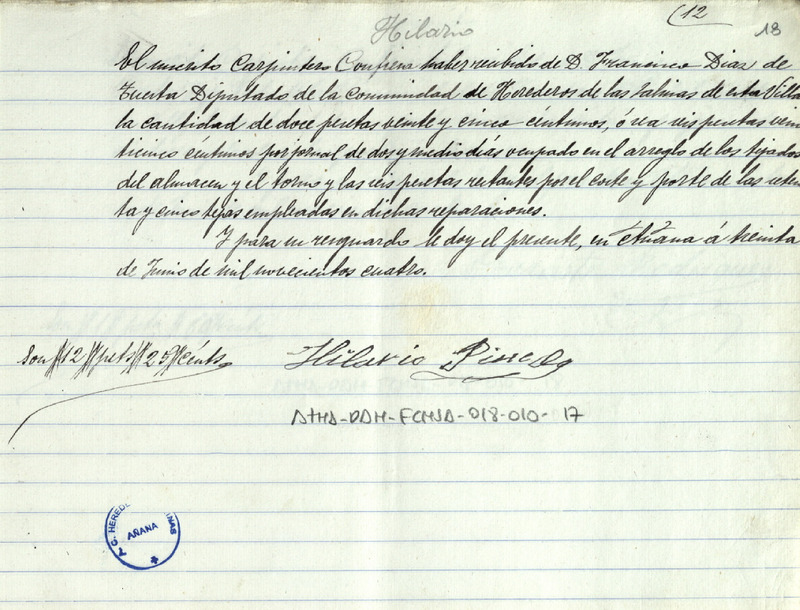 (12
Hilario
18
El suscrito Carpintero Confiesa haber recibido de D. Francisco Diaz de
Tuesta Diputado de la Comunidad de Herederos de las salinas de esta Villa
la cantidad de doce pesetas veinte y cinco céntimos, ó sea seis pesetas vein
ticinco céntimos por jornal de dos y medio dias ocupado en el arreglo de los tejados
del almacen y el torno y las seis pesetas restantes por el coste y porte de las seten
ta y cinco tejas empleadas en dichas reparaciones.
Y para su resguardo le doy el presente, en Añana á treinta
de Junio de mil novecientos cuatro.
Son # 12 # pets # 25 # cénts
Hilario Pinedo
ATHA-DAH-FCHSA-018-010-17
AÑANA